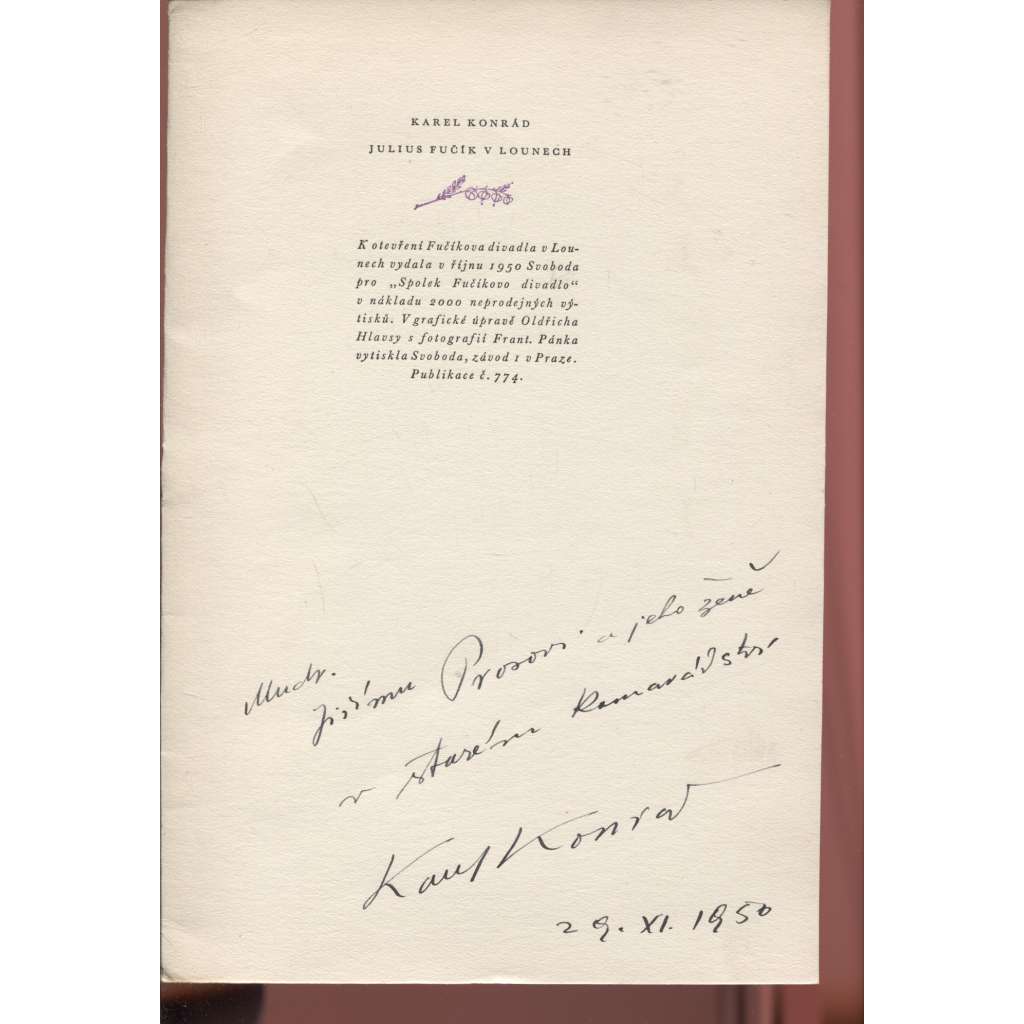 KAREL KONRÁD
JULIUS FUČÍK V LOUNECH
K otevření Fučíkova divadla v Lou-
nech vydala v říjnu 1950 Svoboda
pro „Spolek Fučíkovo divadlo“
v nákladu 2000 neprodejných vý-
tisků. V grafické úpravě Oldřicha
Hlavsy s fotografií Frant. Pánka
vytiskla Svoboda, závod 1 v Praze.
Publikace č. 774.
Mudr.
Jiřímu Prosovi a jeho ženě
v starém kamarádství
Karel Konrád
29. XI. 1950